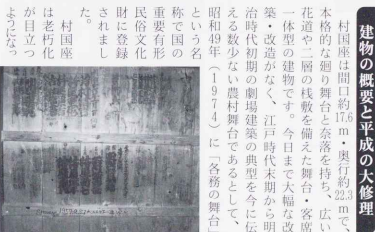 建物の概要と平成の大修理
村国座は間口約17.6m・奥行約22.3mで、
本格的な廻り舞台と奈落を持ち、広い
花道や二層の桟敷を備えた舞台・客席
一体型の建物です。今日まで大幅な改
築・改造がなく、江戸時代末期から明
治時代初期の劇場建築の典型を今に伝
える数少ない農村舞台であるとして、
昭和49年(1974)に「各務の舞台」
という名
称で国の
重要有形
民俗文化
財に登録
されまし
た。
村国座
は老朽化
が目立つ
ようになっ